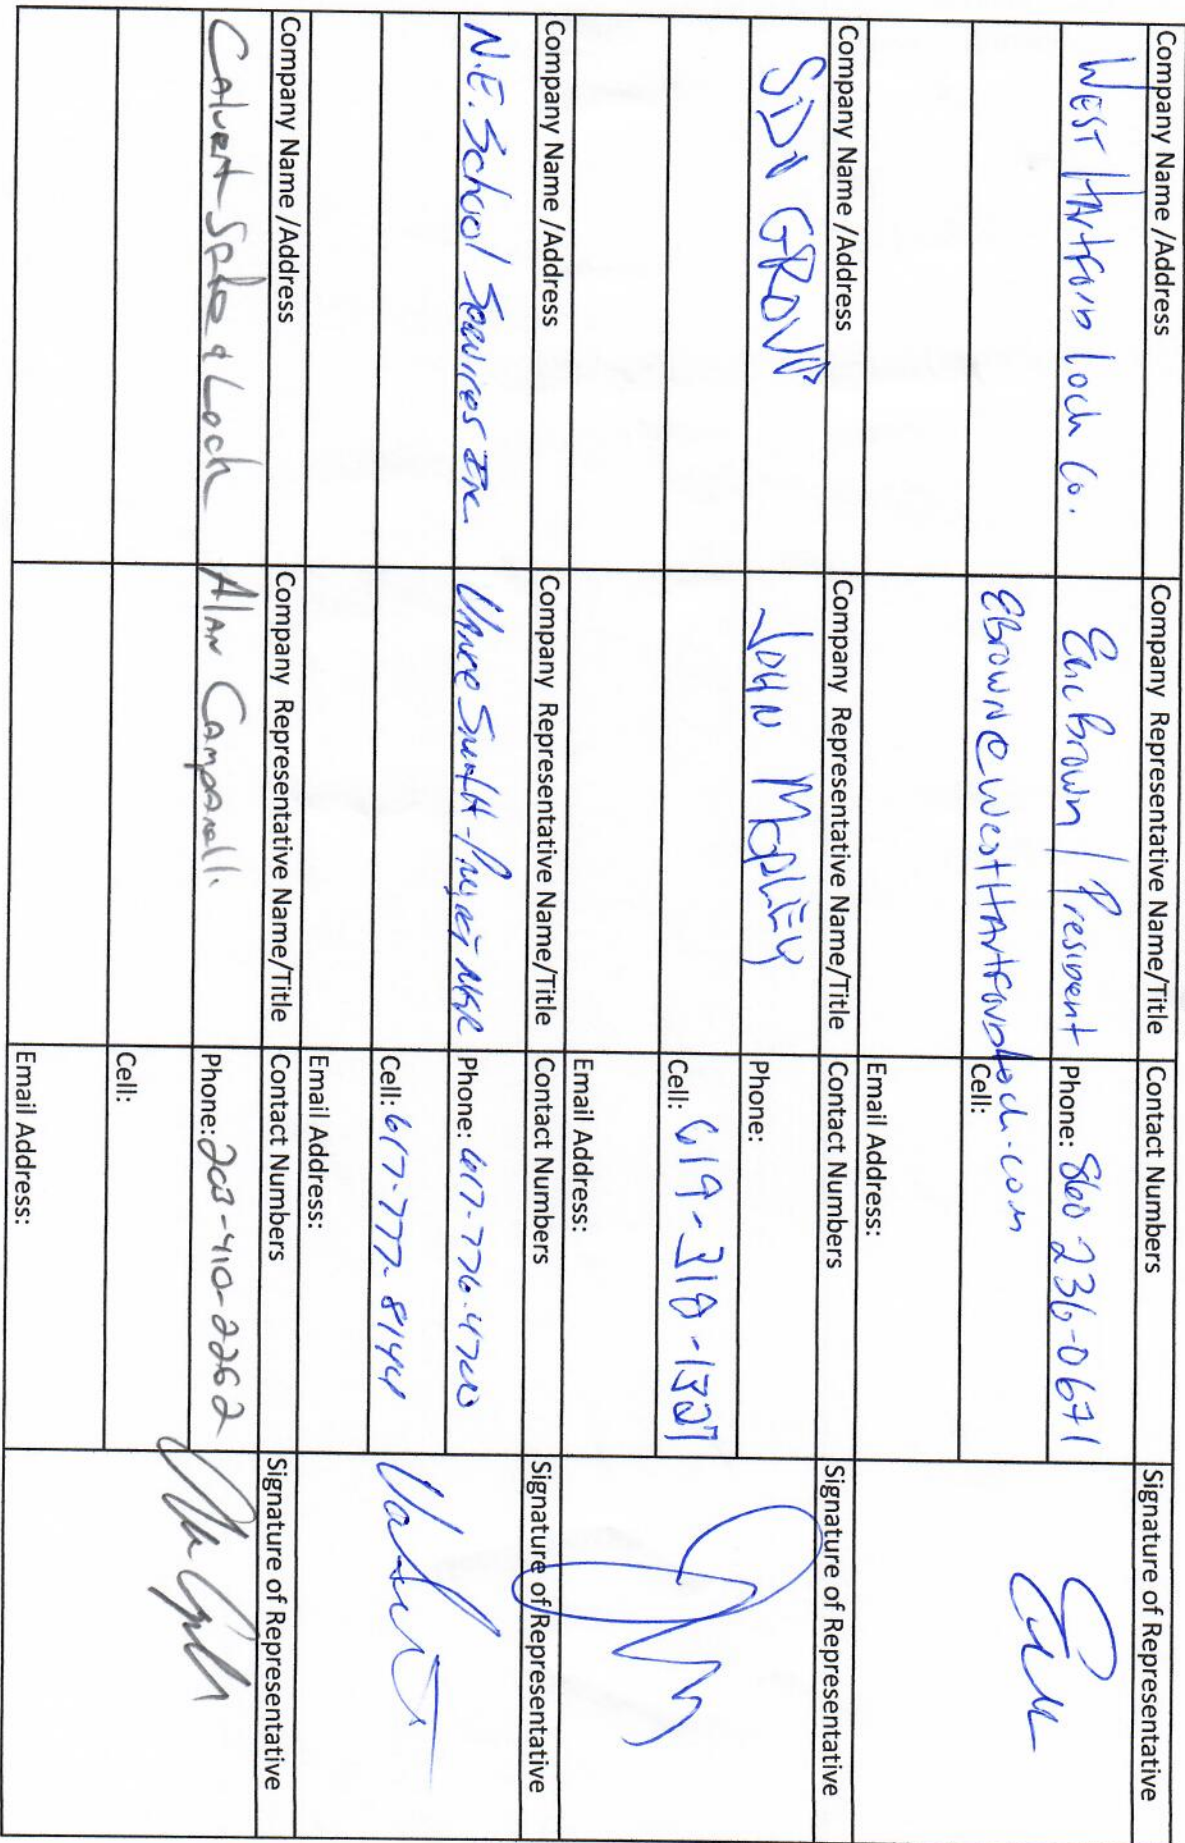 Company Name /Address Company Representative Name/Title Contact Numbers Signature of Representative
West Hartford Lock Co. Eric Brown / President Phone: 860 236-0671
EBrown@WestHartfordLock.com Cell:
Email Address:
Company Name /Address Company Representative Name/Title Contact Numbers Signature of Representative
SDI GROUP John Phone:
Cell: 619-319-1327
Email Address:
Company Name /Address Company Representative Name/Title Contact Numbers Signature of Representative
N.E. School Services Inc Vance Smith - Project MGR Phone: 617-776-4700
Cell: 617-777-8144
Email Address:
Company Name /Address Company Representative Name/Title Contact Numbers Signature of Representative
Calvert Safe & Lock Alan Campanelli Phone: 203-410-2262
Cell:
Email Address: